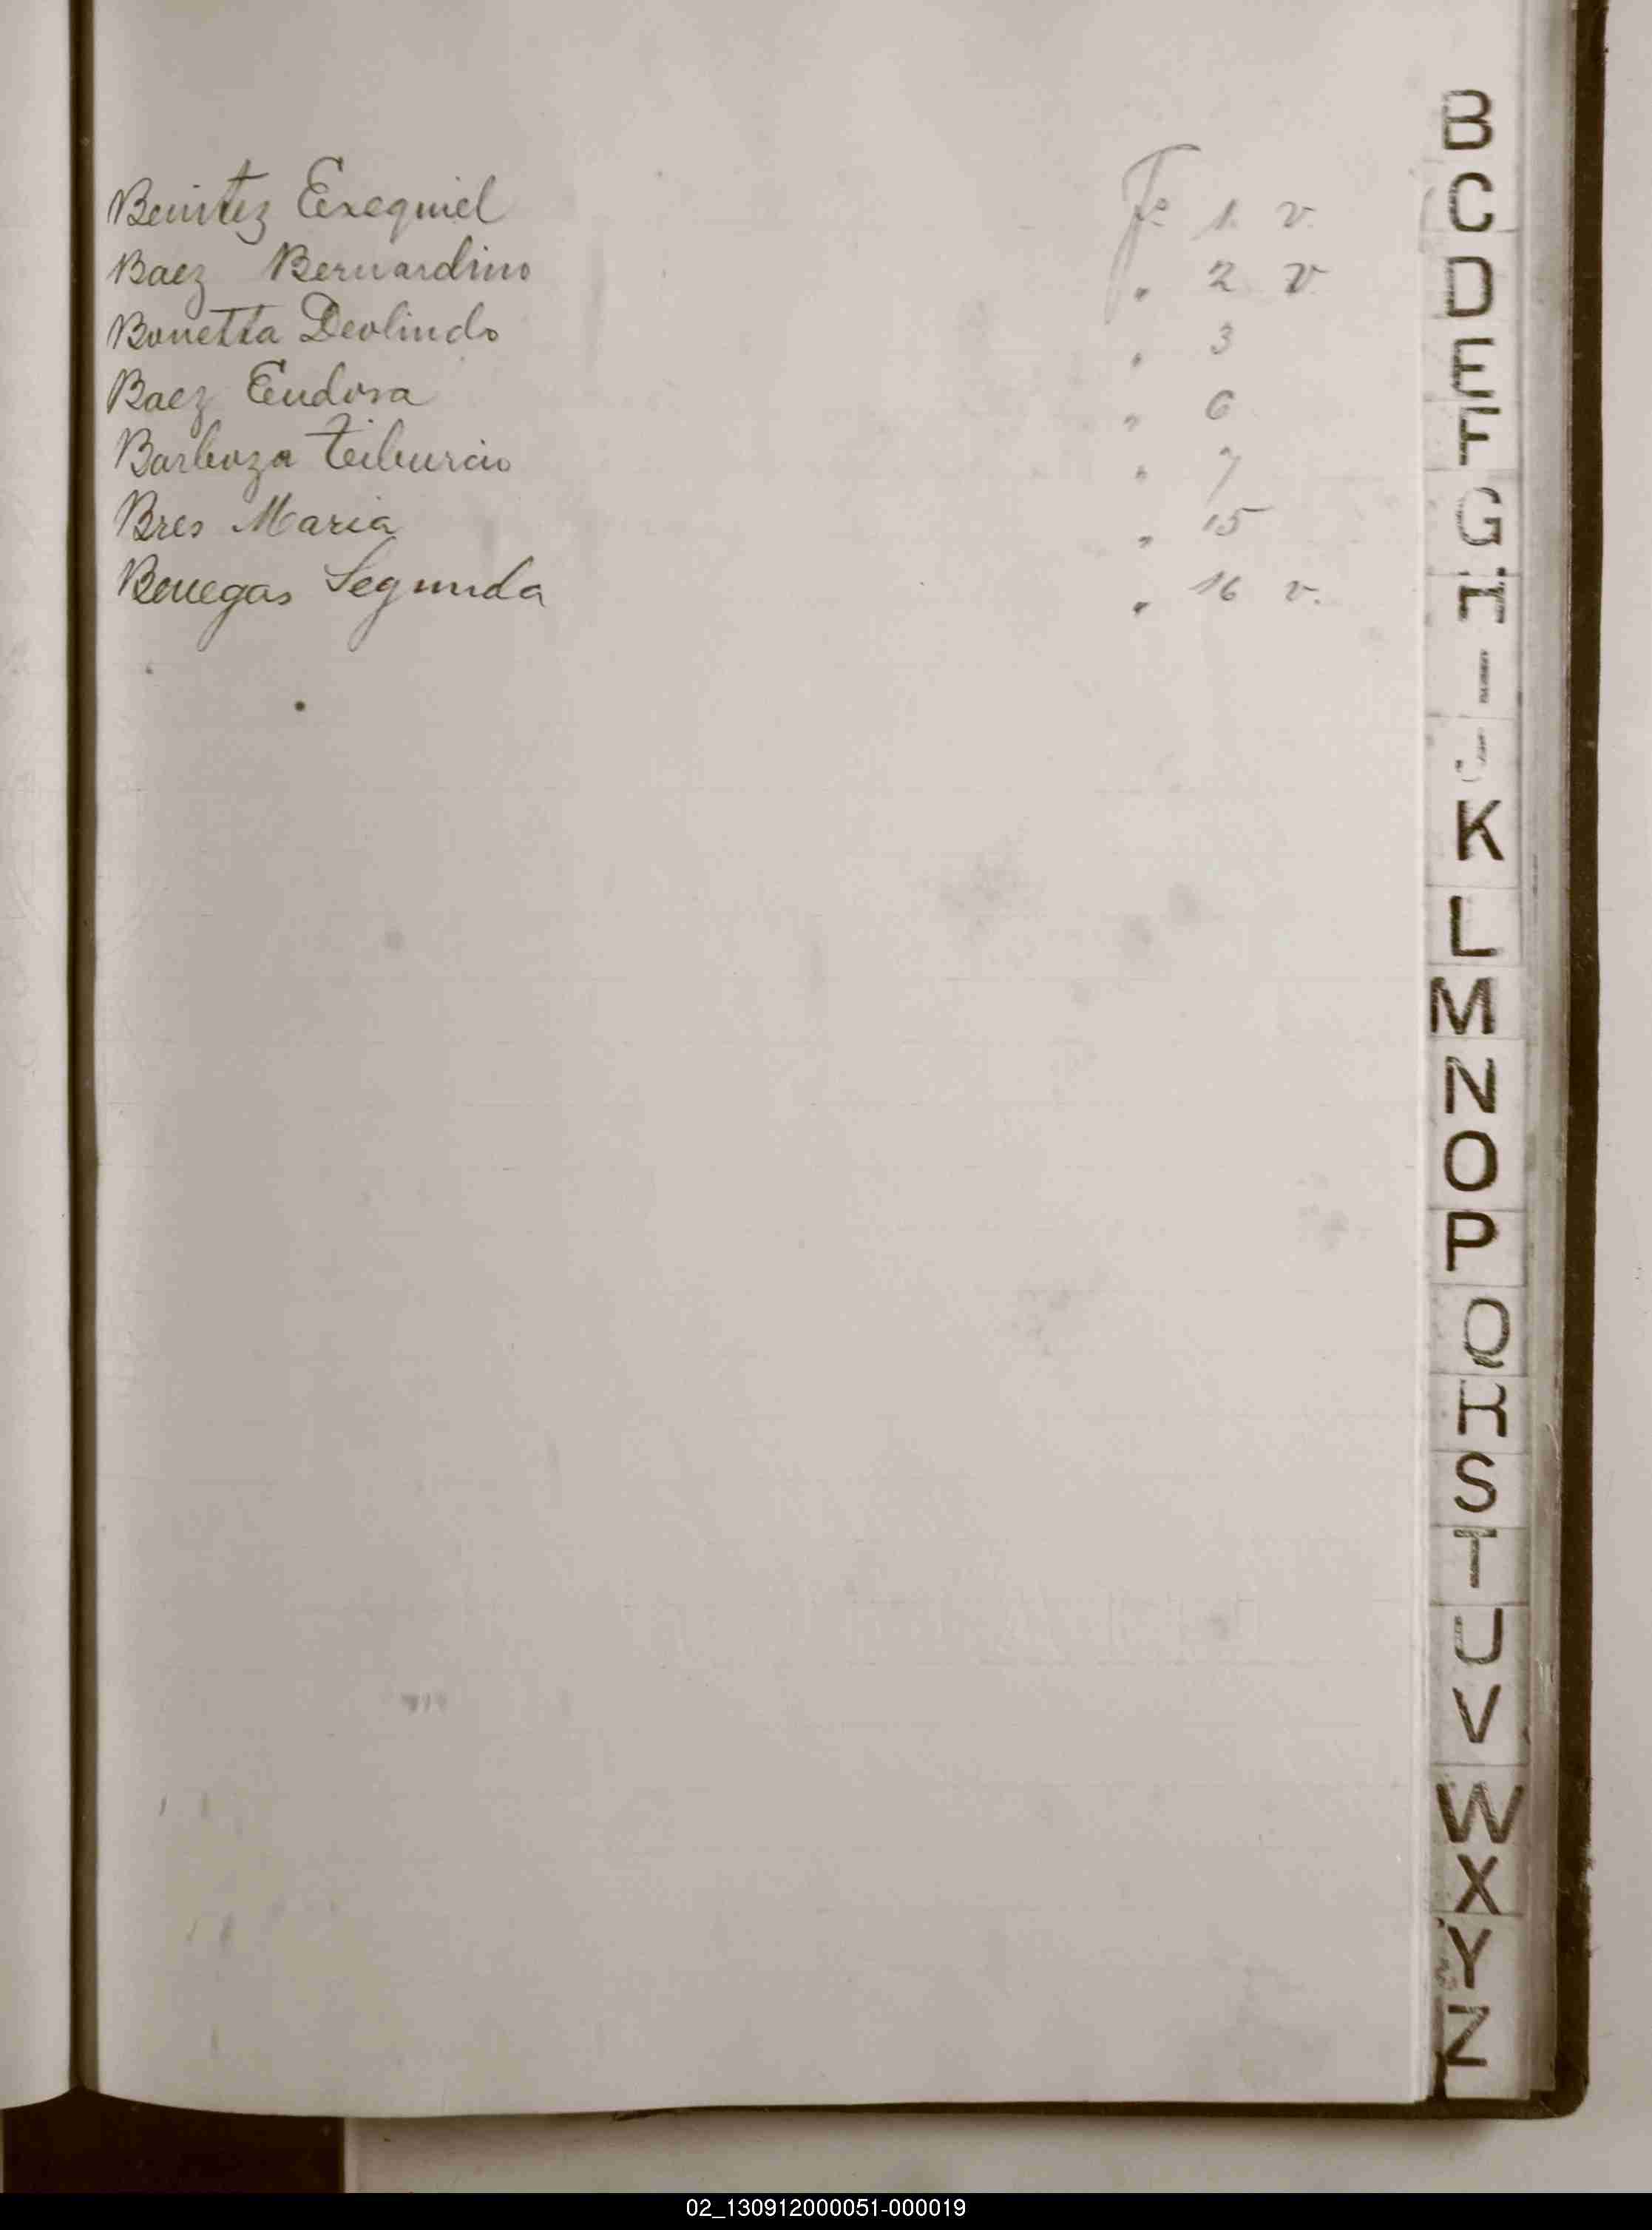 Benitez Exequiel Fº 1 v.
Baez Bernardino " 2 v
Bonetta Deolindo " 3
Baez Eudosa " 6
Barboza Tiburcio " 7
Bres Maria " 15
Benegas Segunda " 16 v.
B
C
D
E
F
G
H
I
J
K
L
M
N
O
P
Q
R
S
T
U
V
W
X
Y
Z
02_130912000051-000019